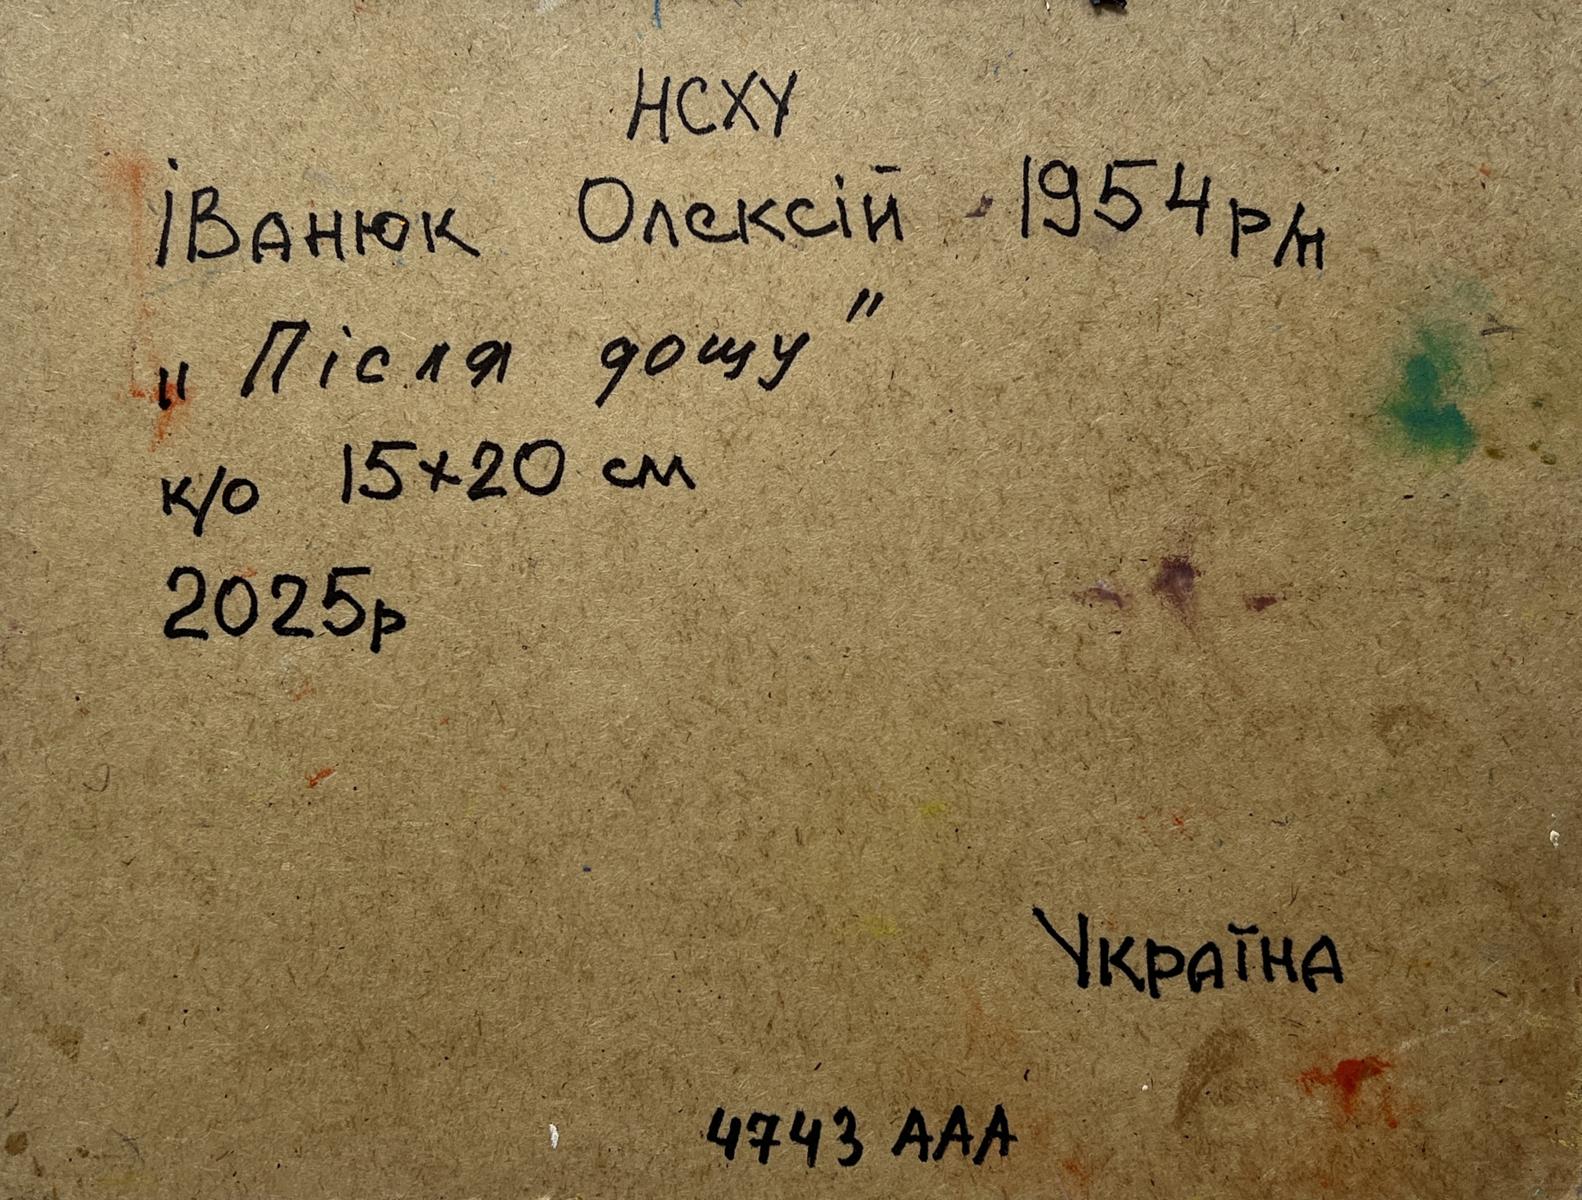 НСХУ
Іванюк Олексій 1954 р/н
„Після дощу"
к/о 15х20 см
2025р
Україна
4743 ААА